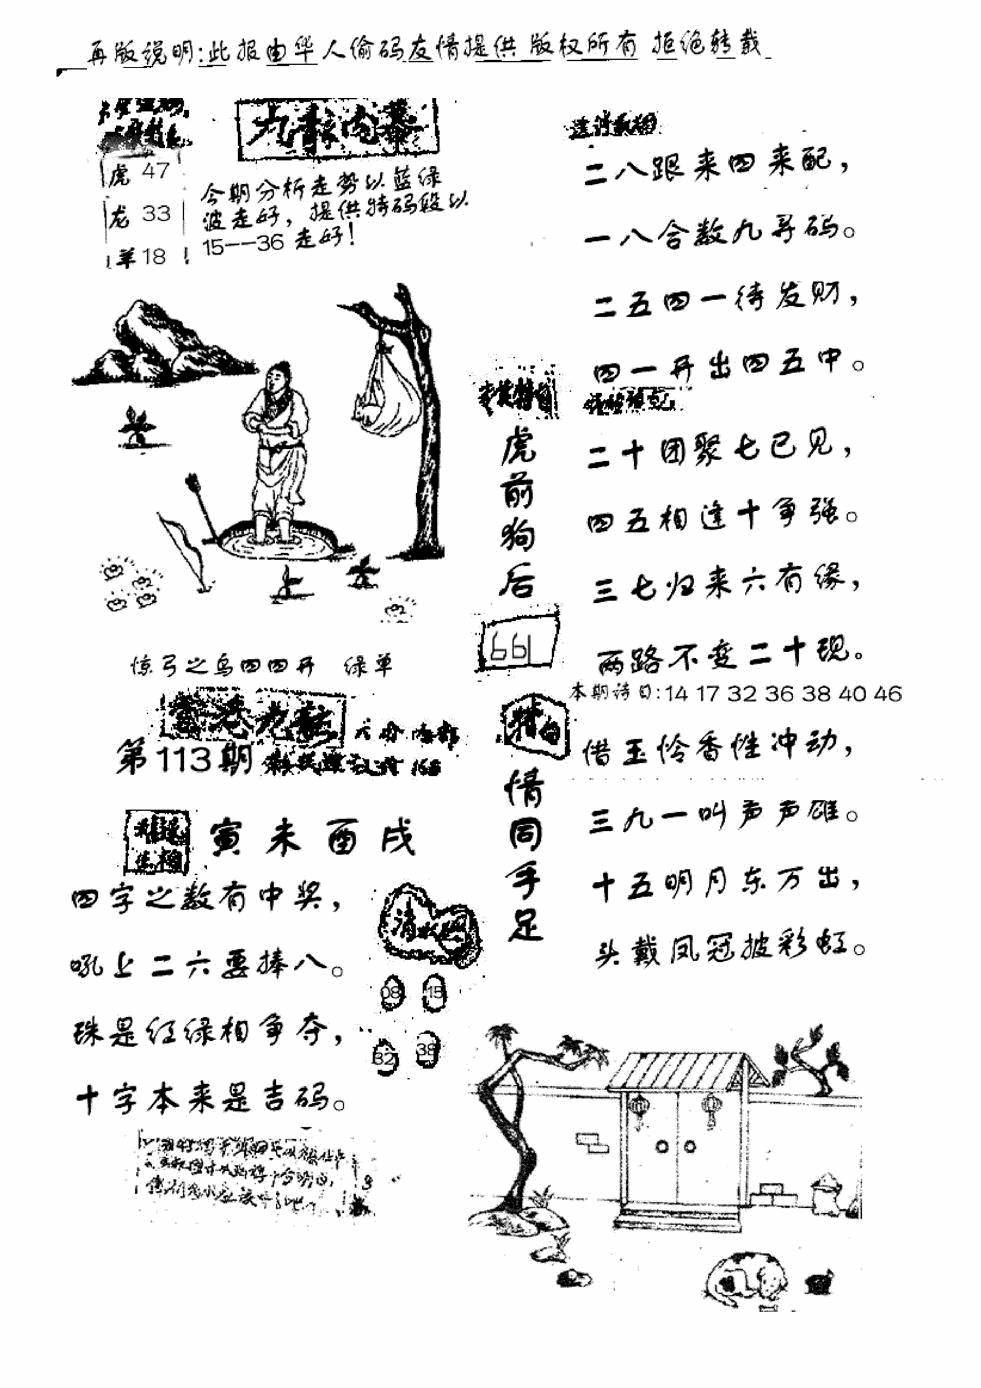 再版说明:此报由华人偷码友情提供 版权所有 拒绝转载
九龙内幕
虎 47
龙 33
羊 18
今期分析走势以蓝绿
波走好，提供特码段以
15--36 走好！
惊弓之鸟四四开 绿单
二八跟来四来配，
一八合数九寻码。
二五四一待发财，
四一开出四五中。
虎前狗后
661
二十团聚七已见，
四五相逢十争强。
三七归来六有缘，
两路不变二十现。
本期诗曰:14 17 32 36 38 40 46
借玉怜香性冲动，
三九一叫声声雄。
十五明月东方出，
头戴凤冠披彩虹。
情同手足
香港九龙
第113期
寅未酉戌
四字之数有中奖，
吼上二六要捧八。
珠是红绿相争夺，
十字本来是吉码。
08 15
32 38